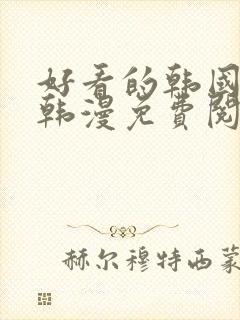 好看的韩国
韩漫免费阅
赫尔穆特西蒙